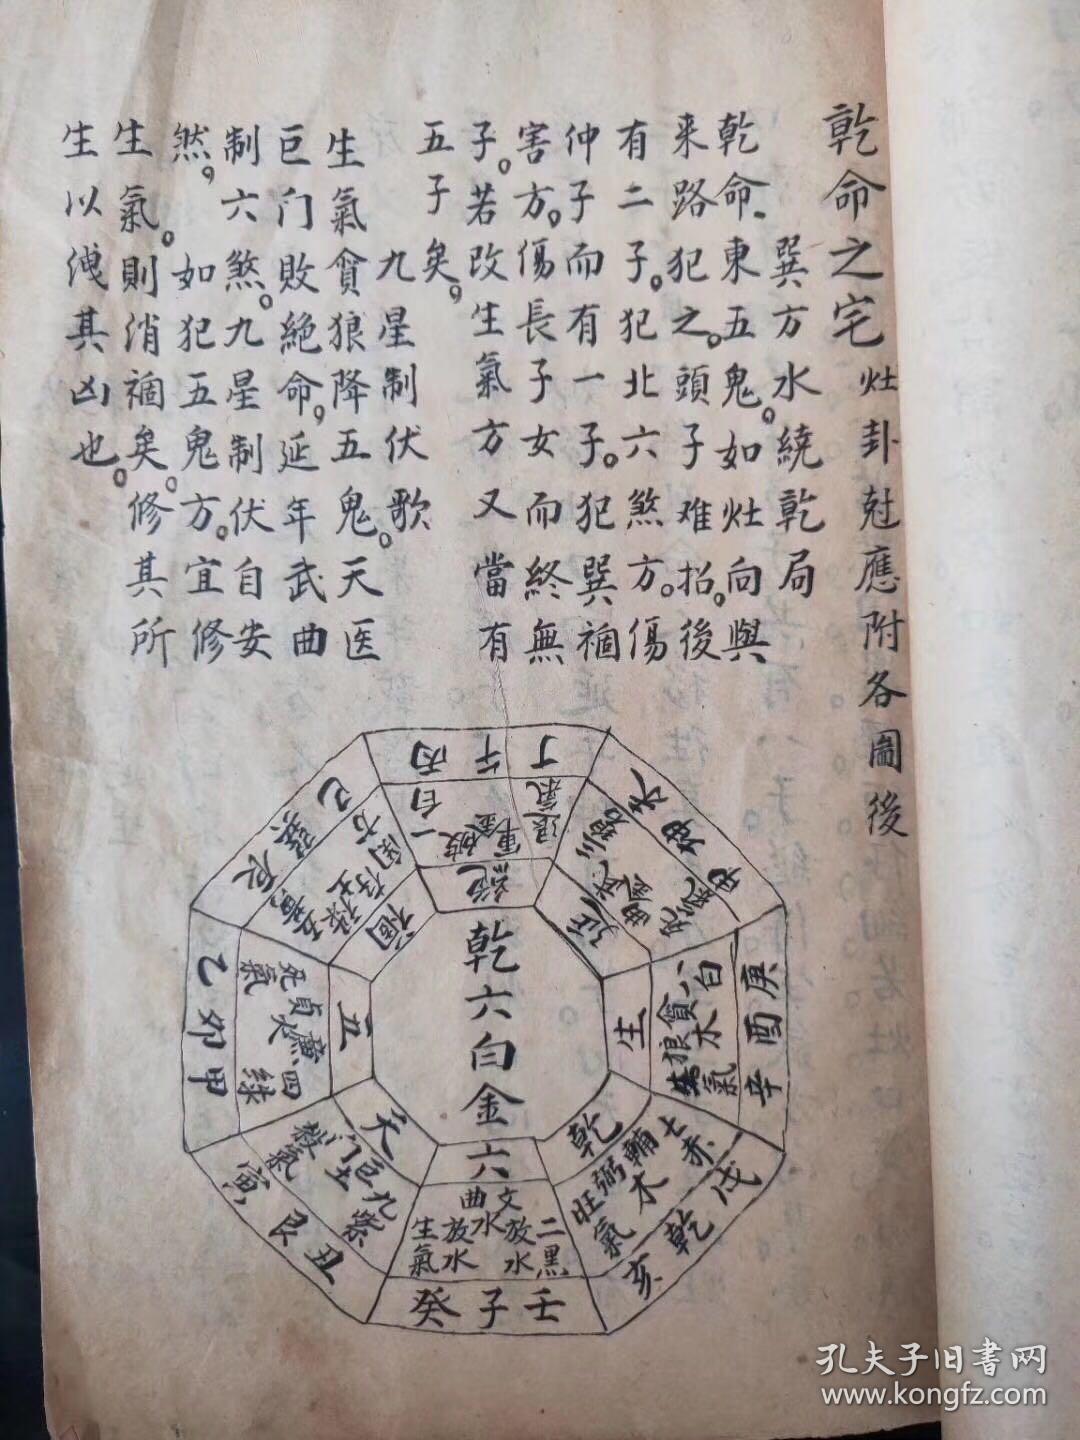 乾命之宅 灶卦尅應附各圖後
巽方水繞乾局
乾命東五鬼。如灶向與
来路犯之。頭子难招。後
有二子。犯北六煞方。傷
仲子而有一子。犯巽禍
害方。傷長子女而終無
子。若改生氣方又當有
五子矣。
九星制伏歌
生氣貪狼降五鬼。天医
巨门敗絕命。延年武曲
制六煞。九星制伏自安
然。如犯五鬼方。宜修
生氣。則消禍矣。修其所
生以洩其凶也。
丁午丙
一白 破軍金 退氣
絕
未坤申
三碧 武曲 死氣
延
庚酉辛
八白 貪狼木 氣
生
戌乾亥
七赤 輔弼木 旺氣
乾
壬子癸
二黑 文曲水 放水 放水 生氣
六
丑艮寅
九紫 巨门土 殺氣
天
甲卯乙
四綠 廉貞火 死氣
五
巽巳
禄存土
禍
乾六白金
孔夫子旧書网
www.kongfz.com